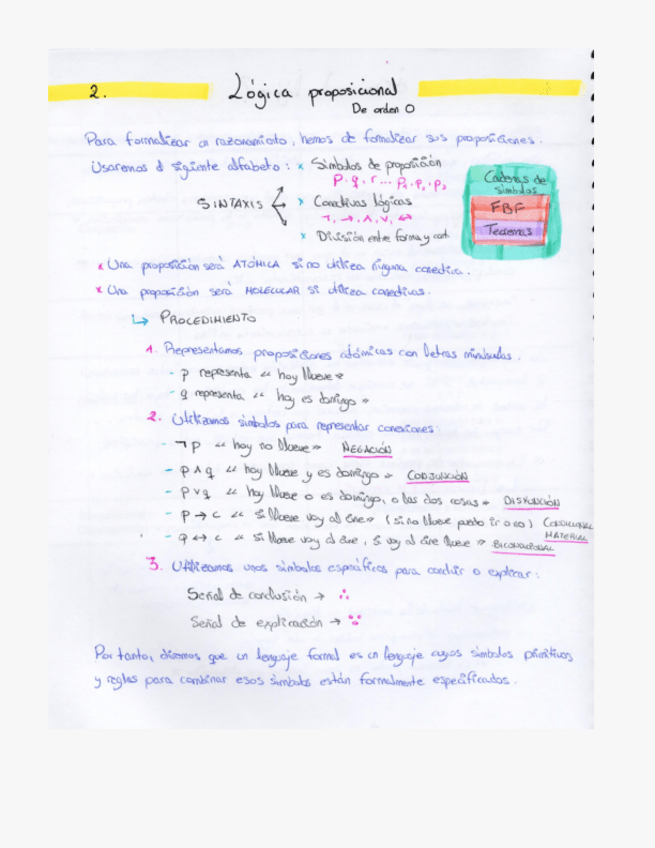 2. Lógica proposicional
De orden 0
Para formalizar un razonamiento, hemos de formalizar sus proposiciones.
Usaremos el siguiente alfabeto: × Símbolos de proposición
p, q, r ... p₁, p₂, p₃
SINTAXIS × Conectivas lógicas
¬, →, ∧, ∨, ↔
× División entre forma y cont.
Cadenas de
símbolos
FBF
Teoremas
× Una proposición será ATÓMICA si no utiliza ninguna conectiva.
× Una proposición será MOLECULAR si utiliza conectivas.
↳ PROCEDIMIENTO
1. Representamos proposiciones atómicas con letras minúsculas.
- p representa « hoy llueve »
- q representa « hoy es domingo »
2. Utilizamos símbolos para representar conexiones:
- ¬ p « hoy no llueve » NEGACIÓN
- p ∧ q « hoy llueve y es domingo » CONJUNCIÓN
- p ∨ q « hoy llueve o es domingo, o las dos cosas » DISYUNCIÓN
- p → c « si llueve voy al cine » (si no llueve puedo ir o no) CONDICIONAL
MATERIAL
- q ↔ c « si llueve voy al cine, si voy al cine llueve » BICONDICIONAL
3. Utilizamos unos símbolos específicos para concluir o explicar:
Señal de conclusión → ∴
Señal de explicación → ∵
Por tanto, diremos que un lenguaje formal es un lenguaje cuyos símbolos primitivos
y reglas para combinar esos símbolos están formalmente especificados.